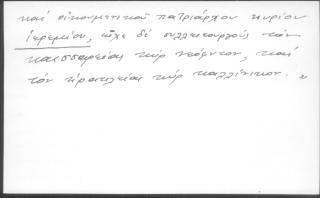 καὶ οἰκουμενικοῦ πατριάρχου κυρίου
Ἱερεμίου, εἶχε δὲ συλλειτουργοὺς τὸν
καισσαρείας κὺρ νεόφυτον, καὶ
τὸν ἡρακλείας κὺρ καλλίνικον.